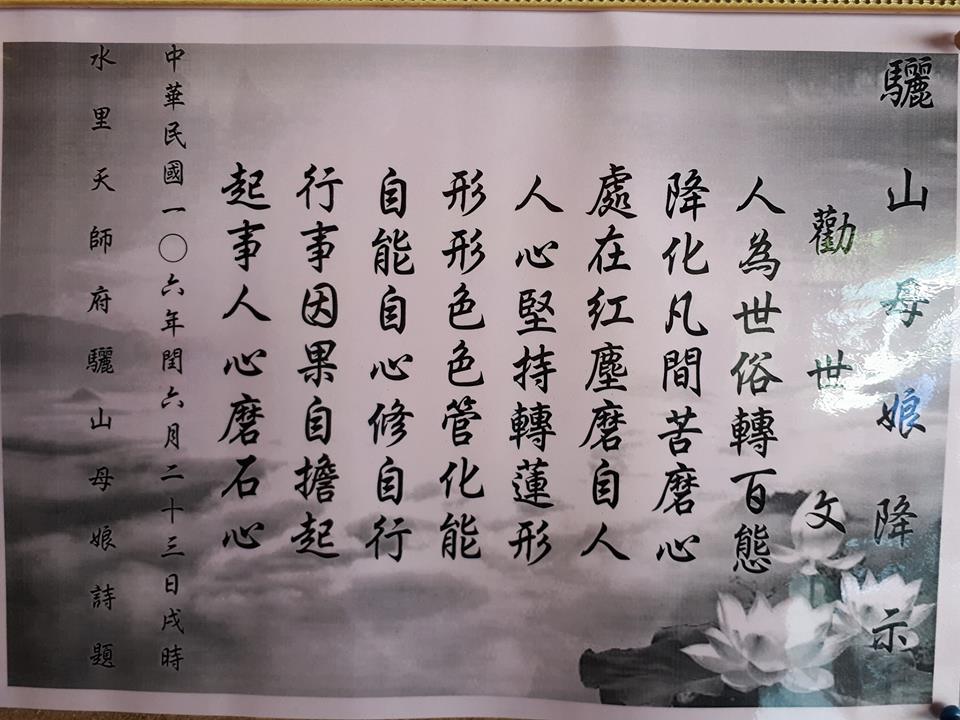 驪山母娘降示
勸世文
人為世俗轉百態
降化凡間苦磨心
處在红塵磨自人
人心堅持轉蓮形
形形色色管化能
自能自心修自行
行事因果自擔起
起事人心磨石心
中華民國一〇六年閏六月二十三日戌時
水里天師府驪山母娘詩題